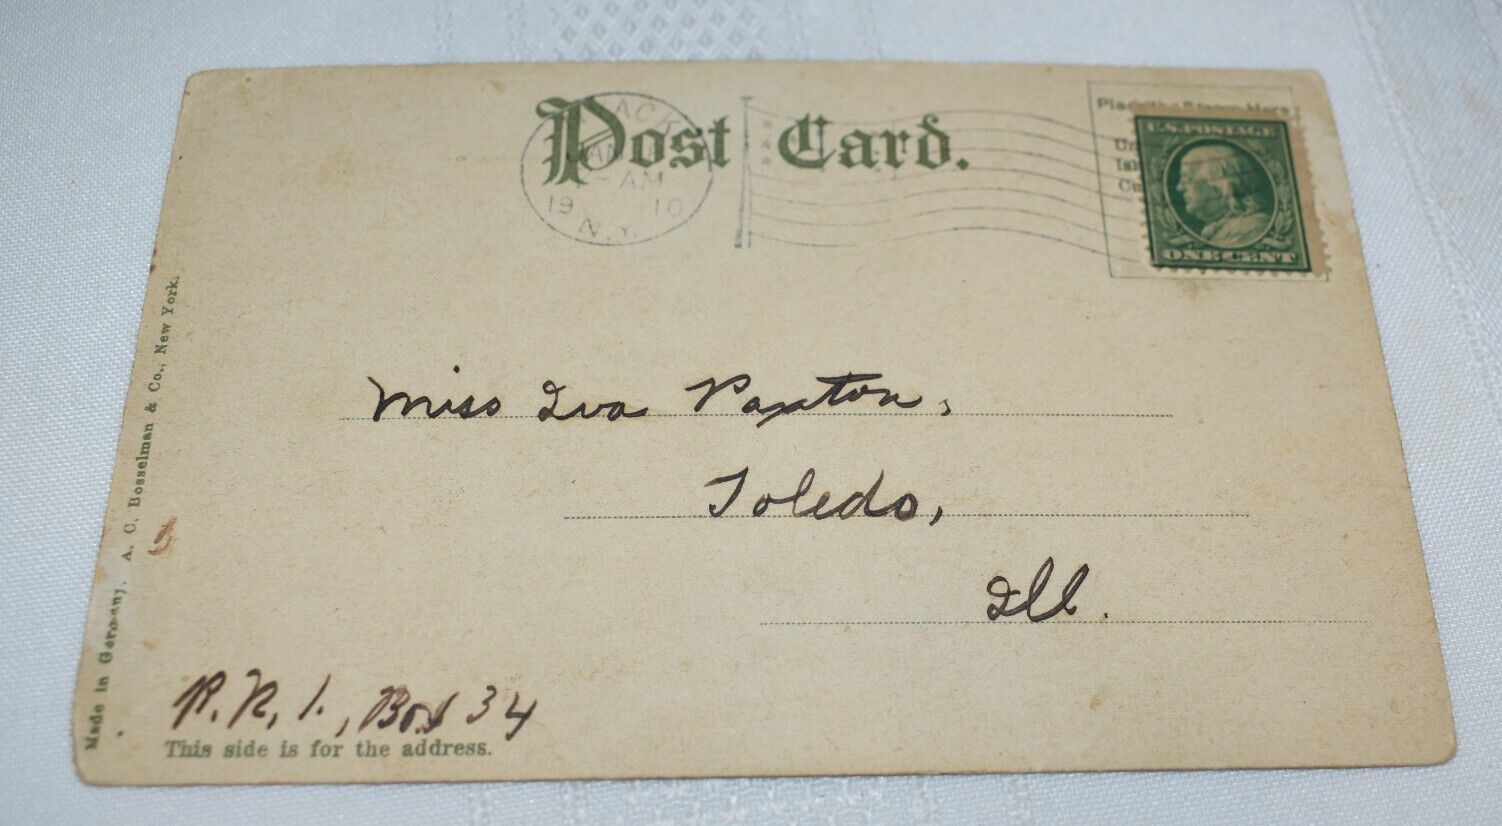 Post Card.
ACK
AM
19 10
N.Y.
Place the Stamp Here
Un
U.S. POSTAGE
ONE CENT
Miss Iva Paxton,
Toledo,
Ill.
R.R. 1., Box 34
This side is for the address.
Made in Germany. A. C. Bosselman & Co., New York.